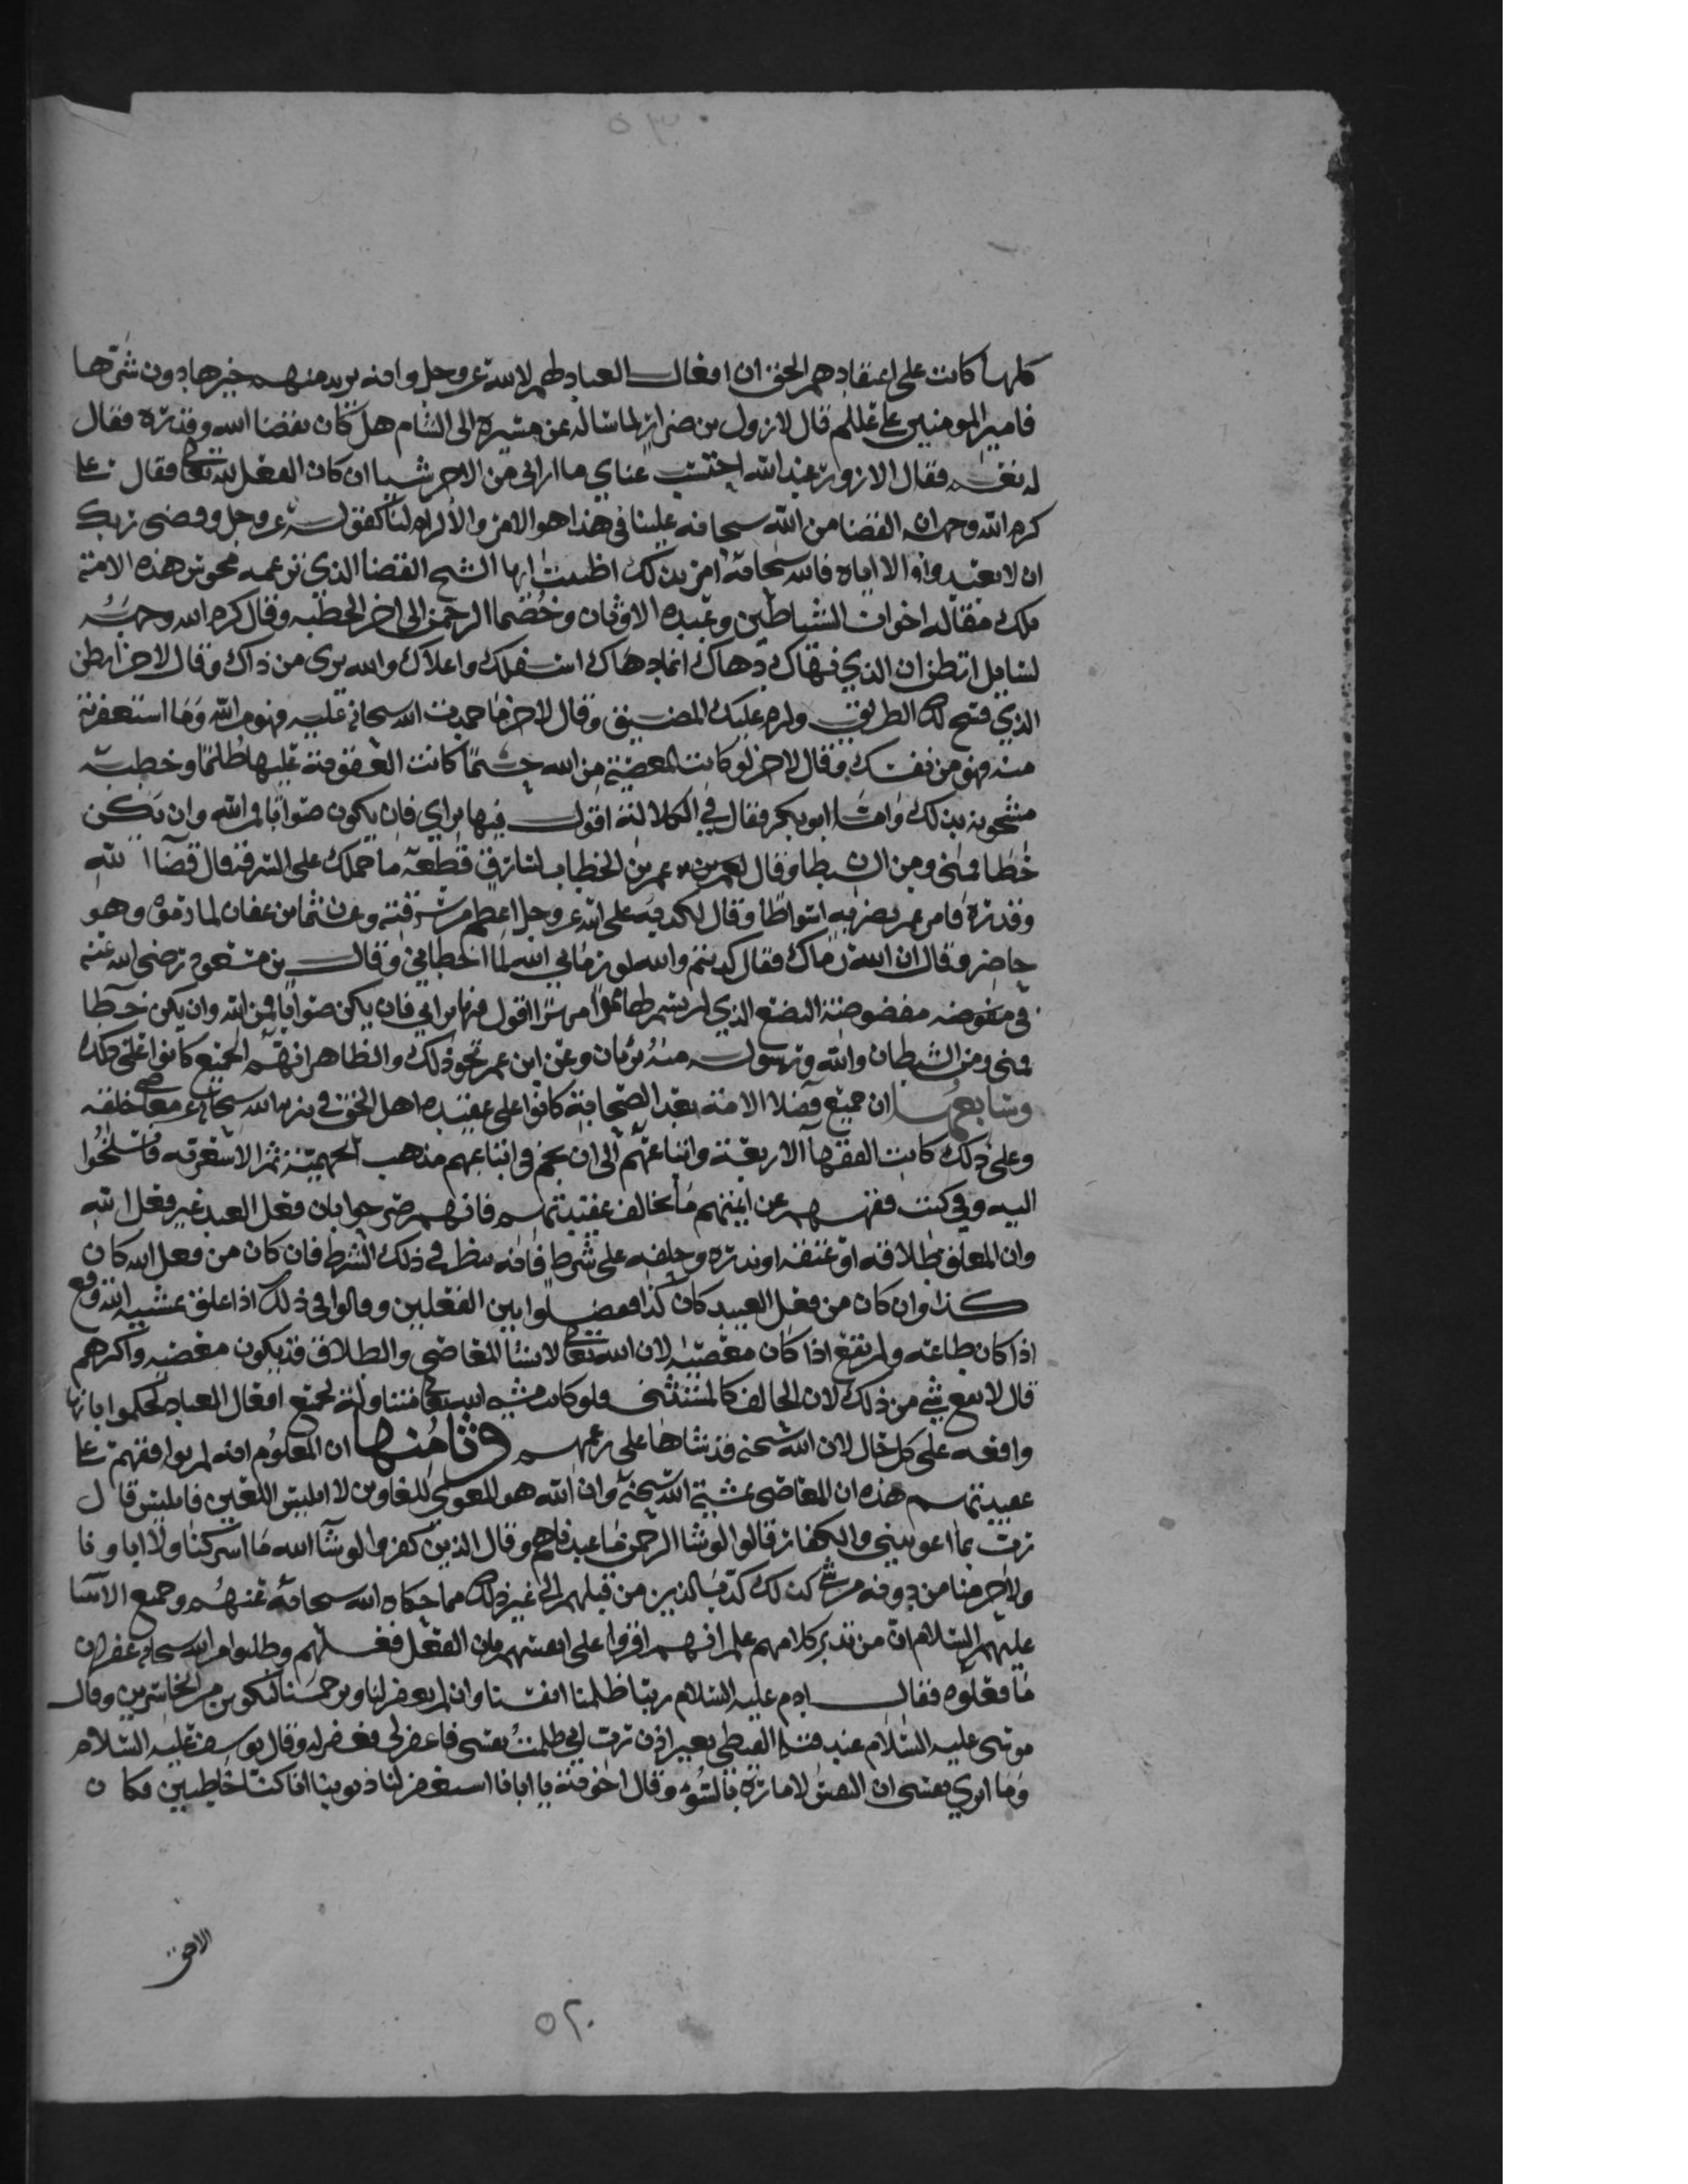 كلها كانت على اعتقادهم الحق ان افعال العباد لهم لا لله عز وجل وانه يريد منهم خيرها دون شرها
فامير المومنين علي عللم قال لازول بن ضرار لما ساله عن مسيره الى الشام هل كان بقضا الله وقدره فقال
له نعم فقال الازور عند الله احتسب عناي ما ارى لي من الاجر شيا ان كان الفعل لله تعالى فقال علي
كرم الله وجهه ان القضا من الله سبحانه علينا في هذا هو الامر والالزام لنا كقوله عز وجل وقضى ربك
ان لا تعبدوا الا اياه فالله سبحانه امر بذلك اظننت ايها الشيخ القضا الذي تزعمه مجوس هذه الامة
تلك مقاله اخوان الشياطين وعبده الاوثان وخصما الرحمن الى اخر الخطبه وقال كرم الله وجهه
لسايل اتظن ان الذي نهاك دهاك انما دهاك اسفلك واعلاك والله بري من ذاك وقال لاخر ايظن
الذي فتح لك الطريق ولزم عليك المضيق وقال لاخر ما حمدت الله سبحانه عليه فهو من الله وما استغفرته
منه فهو من نفسك وقال لاخر لو كانت المعصية من الله حتما كانت العقوبة عليها ظلما وخطبه
مشحونه بذلك وامـا ابو بكر فقال في الكلالة اقول فيها براي فان يكون صوابا فمن الله وان يكن
خطا فمني ومن الشيطان وقال عمر بن الخطاب لسارق قطعه ما حملك على السرقه قال قضا الله
وقدره فامر عمر بضربه اسواطا وقال لكذبه على الله عز وجل اعظم من سرقته وعن عثمان بن عفان لما رموه وهو
حاضر وقال ان الله رماك فقال كذبتم والله لو رماني الله لما اخطاني وقال بن مسعود رضي الله عنه
في مفوضه البضع الذي لم يشرط لها مهرا اقول فيها براي فان يكن صوابا فمن الله وان يكن خطا
فمني ومن الشيطان والله ورسوله منه بريان وعن ابن عمر نحو ذلك والظاهر انهم الجميع كانوا على ذلك
وسابعها ان جميع فضلا الامة بعد الصحابة كانوا على عقيده اهل الحق في تنزيه الله سبحانه عن معاصي خلقه
وعلى ذلك كانت الفقها الاربعة واتباعهم الى ان نجم في اتباعهم مذهب الجهمية ثم الاشعريه فانسلخوا
اليه وفي كتب فقههم عن ايمتهم ما يخالف عقيدتهم فانهم صرحوا بان فعل العبد غير فعل الله
وان المعلق طلاقه او عتقه او نذره وحلفه على شرط فانه ينظر في ذلك الشرط فان كان من فعل الله كان
كذا وان كان من فعل العبيد كان كذا ففصلوا بين الفعلين وقالوا في ذلك اذا علق بمشيه الله وقع
اذا كان طاعه ولم تقع اذا كان معصيه لان الله تعالى لا يشا المعاصي والطلاق قد يكون معصيه واكثرهم
قال لا يقع شي من ذلك لان الحالف كالمستثني فلو كانت مشيه الله تعالى متناولة لجميع افعال العباد لحكموا بانها
واقعه على كل حال لان الله سبحنه قد شاها على زعمهم وثامنها ان المعلوم انه لم يوافقهم على
عقيدتهم هذه ان المعاصي بمشية الله سبحنه وان الله هو المغوي للغاوين الا ابليس اللعين فابليس قال
رب بما اغويتني والكفار قالوا لو شا الرحمن ما عبدناهم وقال الذين كفروا لو شا الله ما اشركنا ولا اباونا
ولا حرمنا من دونه من شي كذلك كذب الذين من قبلهم الى غير ذلك مما حكاه الله سبحانه عنهم وجميع الانبيا
عليهم السلام ان من تدبر كلامهم علم انهم اقروا على انفسهم بان الفعل فعلهم وطلبوا من الله سبحانه غفران
ما فعلوه فقال ادم عليه السلام ربنا ظلمنا انفسنا وان لم تغفر لنا وترحمنا لنكونن من الخاسرين وقال
موسى عليه السلام عند قتله القبطي بغير اذن رب اني ظلمت نفسي فاغفر لي فغفر له وقال يوسف عليه السلام
وما ابري نفسي ان النفس لامارة بالسوء وقال اخوته يا ابانا استغفر لنا ذنوبنا انا كنا خاطيين فكان
٥٢٠